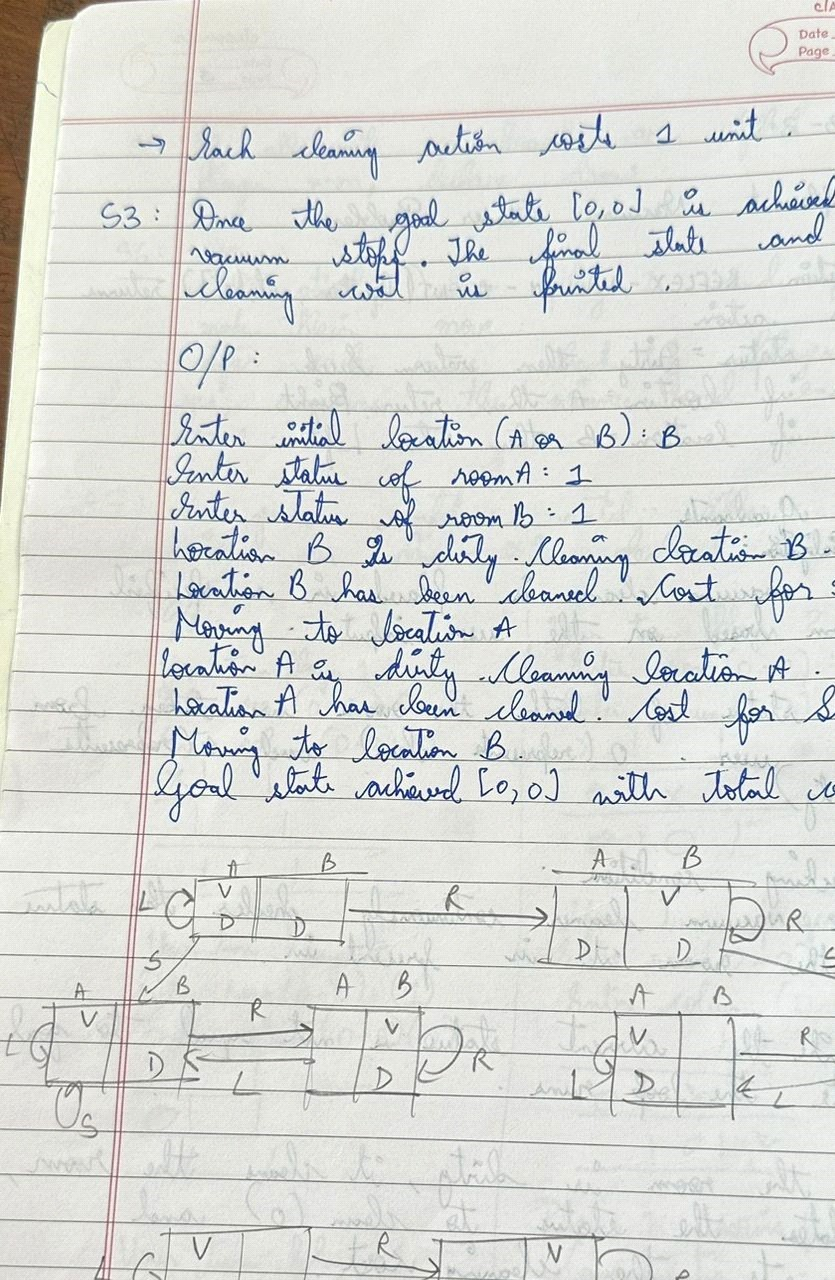 Date
Page
→ Each cleaning action costs 1 unit.
S3: Once the goal state [0,0] is achieved
vacuum stops. The final state and
cleaning cost is printed.
O/P:
Enter initial location (A or B): B
Enter status of room A: 1
Enter status of room B: 1
Location B is dirty. Cleaning location B.
Location B has been cleaned. Cost for
Moving to location A
Location A is dirty. Cleaning location A.
Location A has been cleaned. Cost for S
Moving to location B
Goal state achieved [0,0] with total co
A B A B
L V R V R
D D D D
S S
A B A B A B
L V R V R V R
D L D L D L
S
V R V